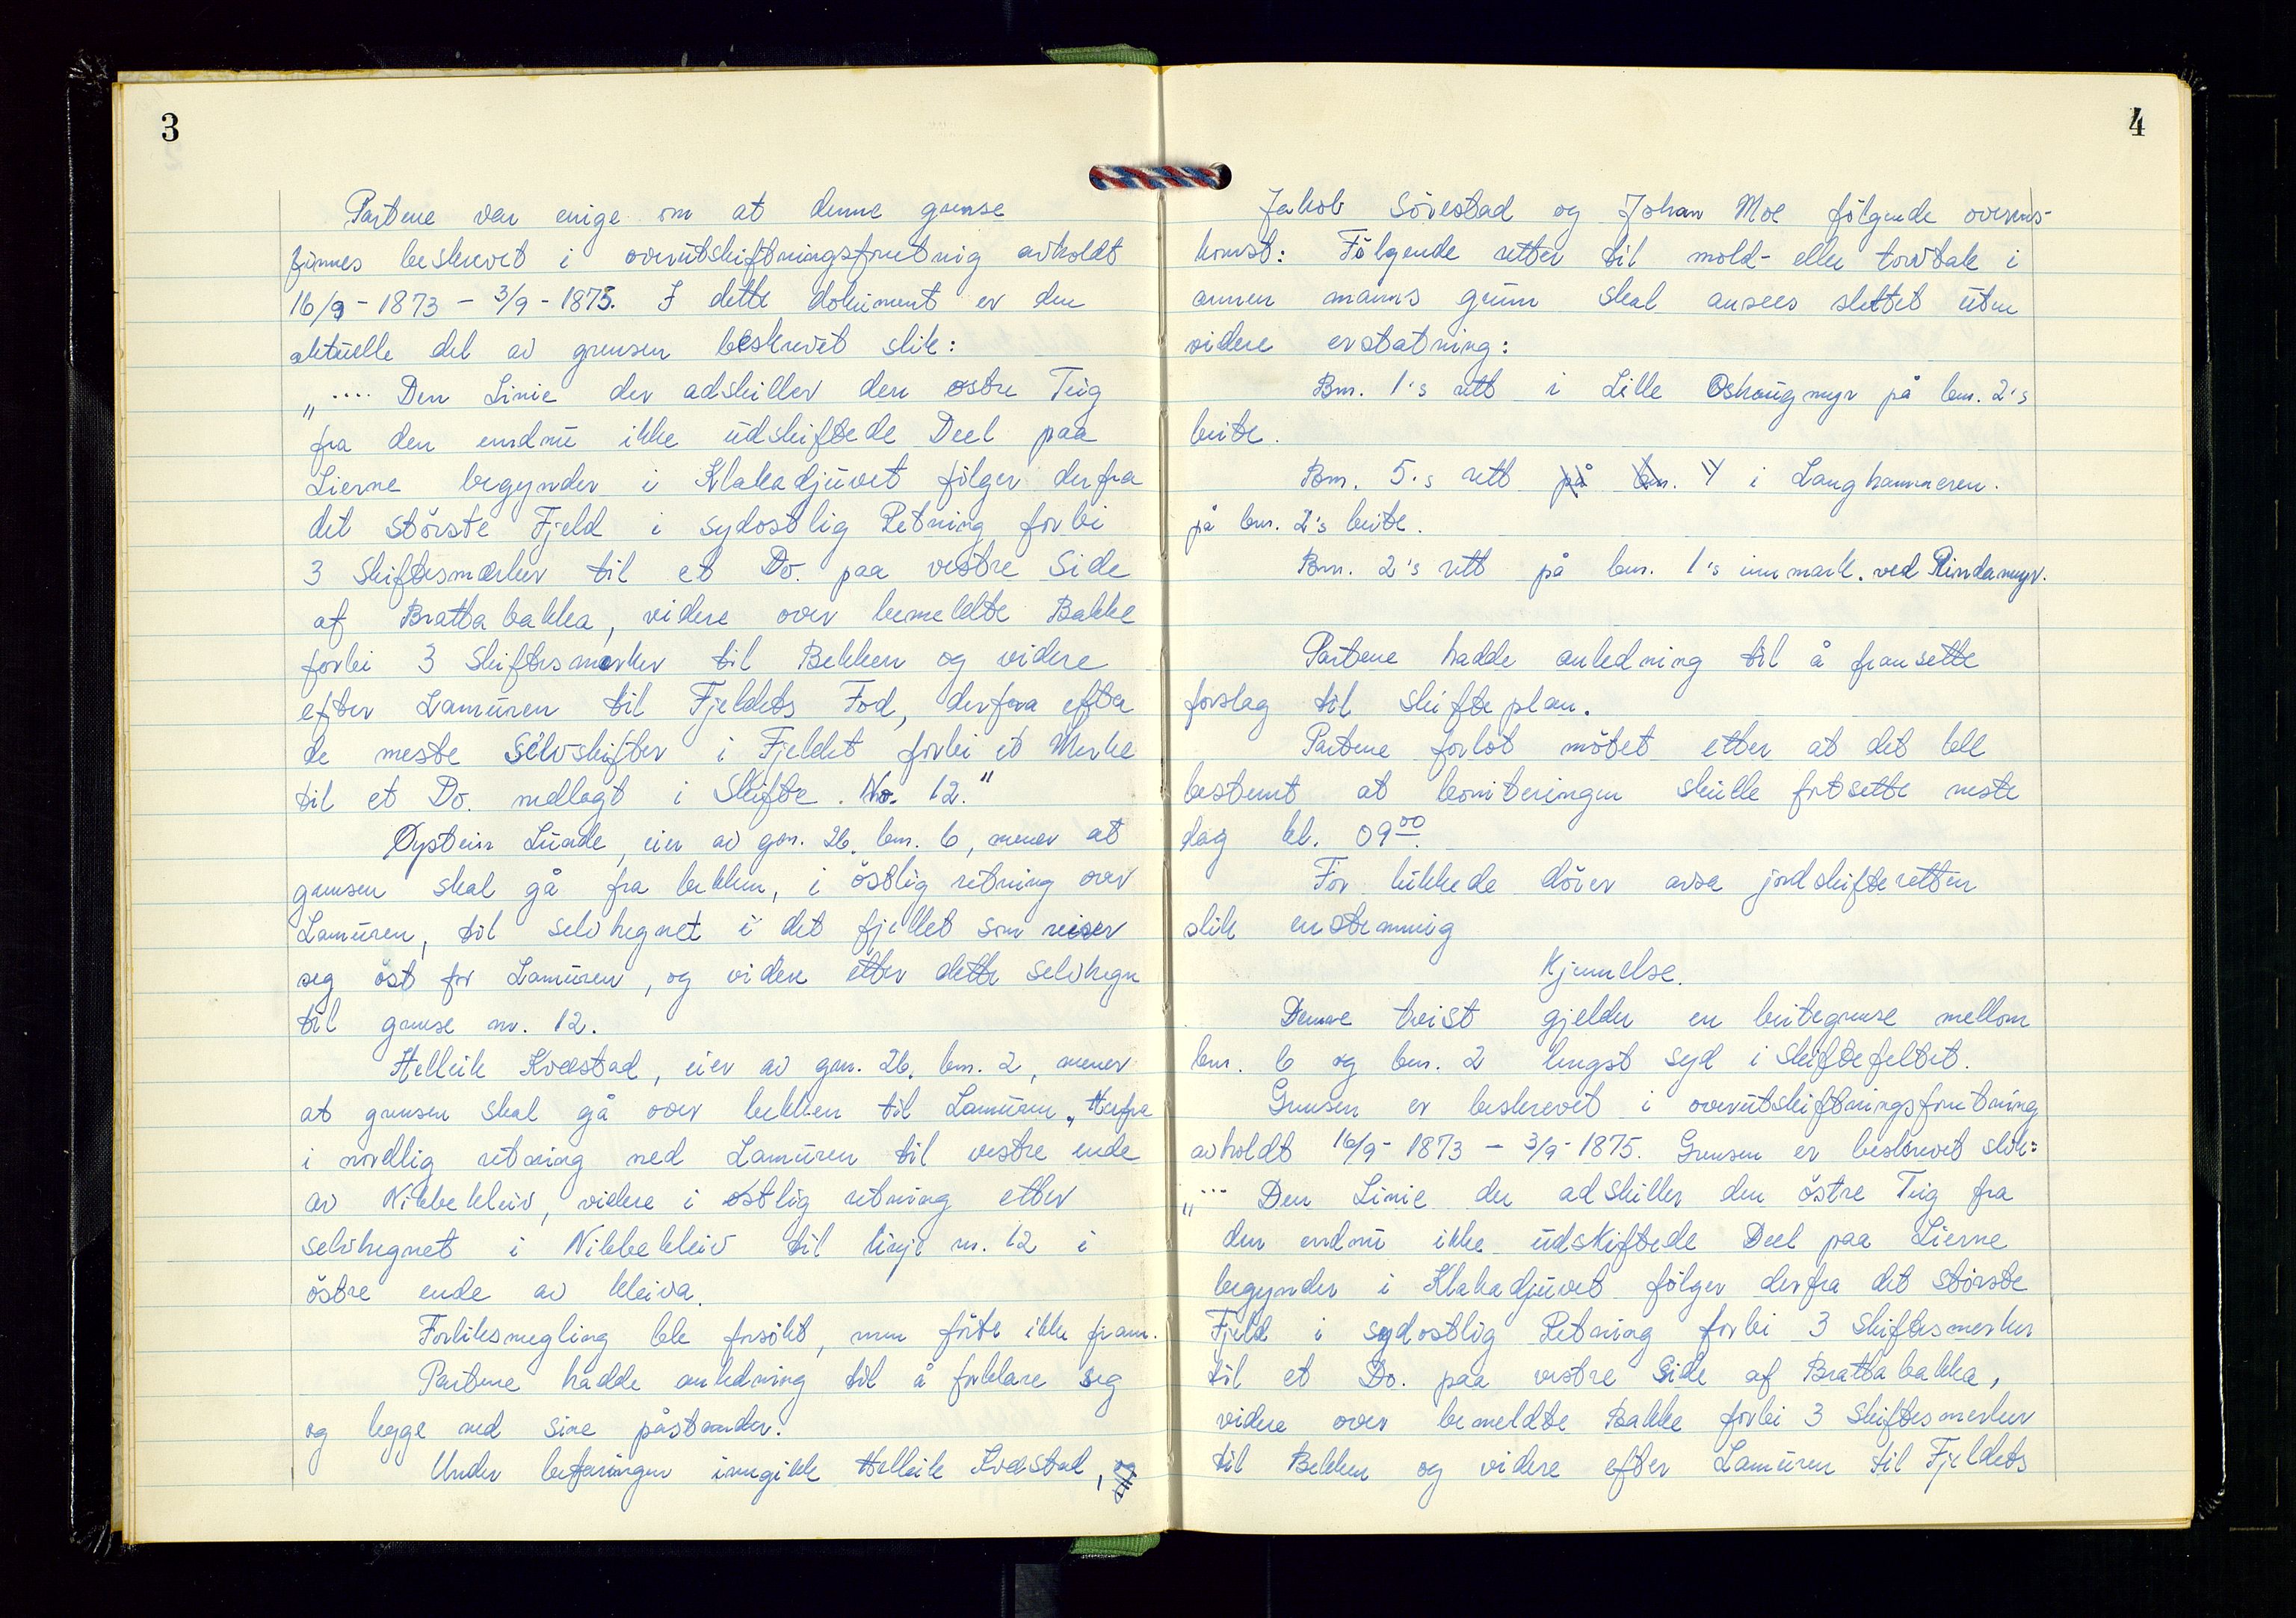 3
Partene var enige om at denne grense
finnes beskrevet i overutskiftningsforretning avholdt
16/9 - 1873 - 3/9 - 1875. I dette dokument er den
aktuelle del av grensen beskrevet slik:
„.... Den Linie der adskiller den østre Teig
fra den endnu ikke udskiftede Deel paa
Lierne begynder i Klakadjuvet følger derfra
det største Fjeld i sydostlig Retning forbi
3 Skiftesmærker til et Do. paa vestre Side
af Brattabakka, videre over bemeldte Bakke
forbi 3 Skiftesmærker til Bekken og videre
efter Lamuren til Fjeldets Fod, derfra efter
de meste Selvskifter i Fjeldet forbi et Merke
til et Do. nedlagt i Skifte. No. 12."
Øystein Luade, eier av gnr. 26. bnr. 6, mener at
grensen skal gå fra bekken, i östlig retning over
Lamuren, til selvhegnet i det fjellet som reiser
seg öst for Lamuren, og videre etter dette selvhegn
til grense nr. 12.
Helleik Kvæstad, eier av gnr. 26. bnr. 2, mener
at grensen skal gå over bekken til Lamuren, Herfra
i nordlig retning ned Lamuren til vestre ende
av Nibbekleiv, videre i østlig retning etter
selvhegnet i Nibbekleiv til linje nr. 12 i
östre ende av kleiva.
Forliksmegling ble forsökt, men förte ikke fram.
Partene hadde anledning til å forklare seg
og legge ned sine påstander.
Under befaringen inngikk Helleik Kvæstad,
4
Jakob Sövestad og Johan Moe fölgende overens-
komst: Fölgende retter til mold- eller torvtak i
annen manns grunn skal ansees slettet uten
videre erstatning:
Bnr. 1's rett i Lille Oshaugmyr på bnr. 2's
beite.
Bnr. 5's rett på bnr. 4 i Langhammeren.
på bnr. 2's beite.
Bnr. 2's rett på bnr. 1's innmark. ved Rindamyr.
Partene hadde anledning til å framsette
forslag til skifteplan.
Partene forlot mötet etter at det ble
bestemt at boniteringen skulle fortsette neste
dag kl. 09⁰⁰.
For lukkede dörer avsa jordskifteretten
slik enstemmig
Kjennelse.
Denne tvist gjelder en beitegrense mellom
bnr. 6 og bnr. 2 lengst syd i skiftefeltet.
Grensen er beskrevet i overutskiftningsforretning
avholdt 16/9 - 1873 - 3/9 - 1875. Grensen er beskrevet slik:
„... Den Linie der adskiller den östre Teig fra
den endnu ikke udskiftede Deel paa Lierne
begynder i Klakadjuvet følger derfra det største
Fjeld i sydostlig Retning forbi 3 Skiftesmerker
til et Do. paa vestre Side af Brattabakka,
videre over bemeldte Bakke forbi 3 Skiftesmerker
til Bekken og videre efter Lamuren til Fjeldets